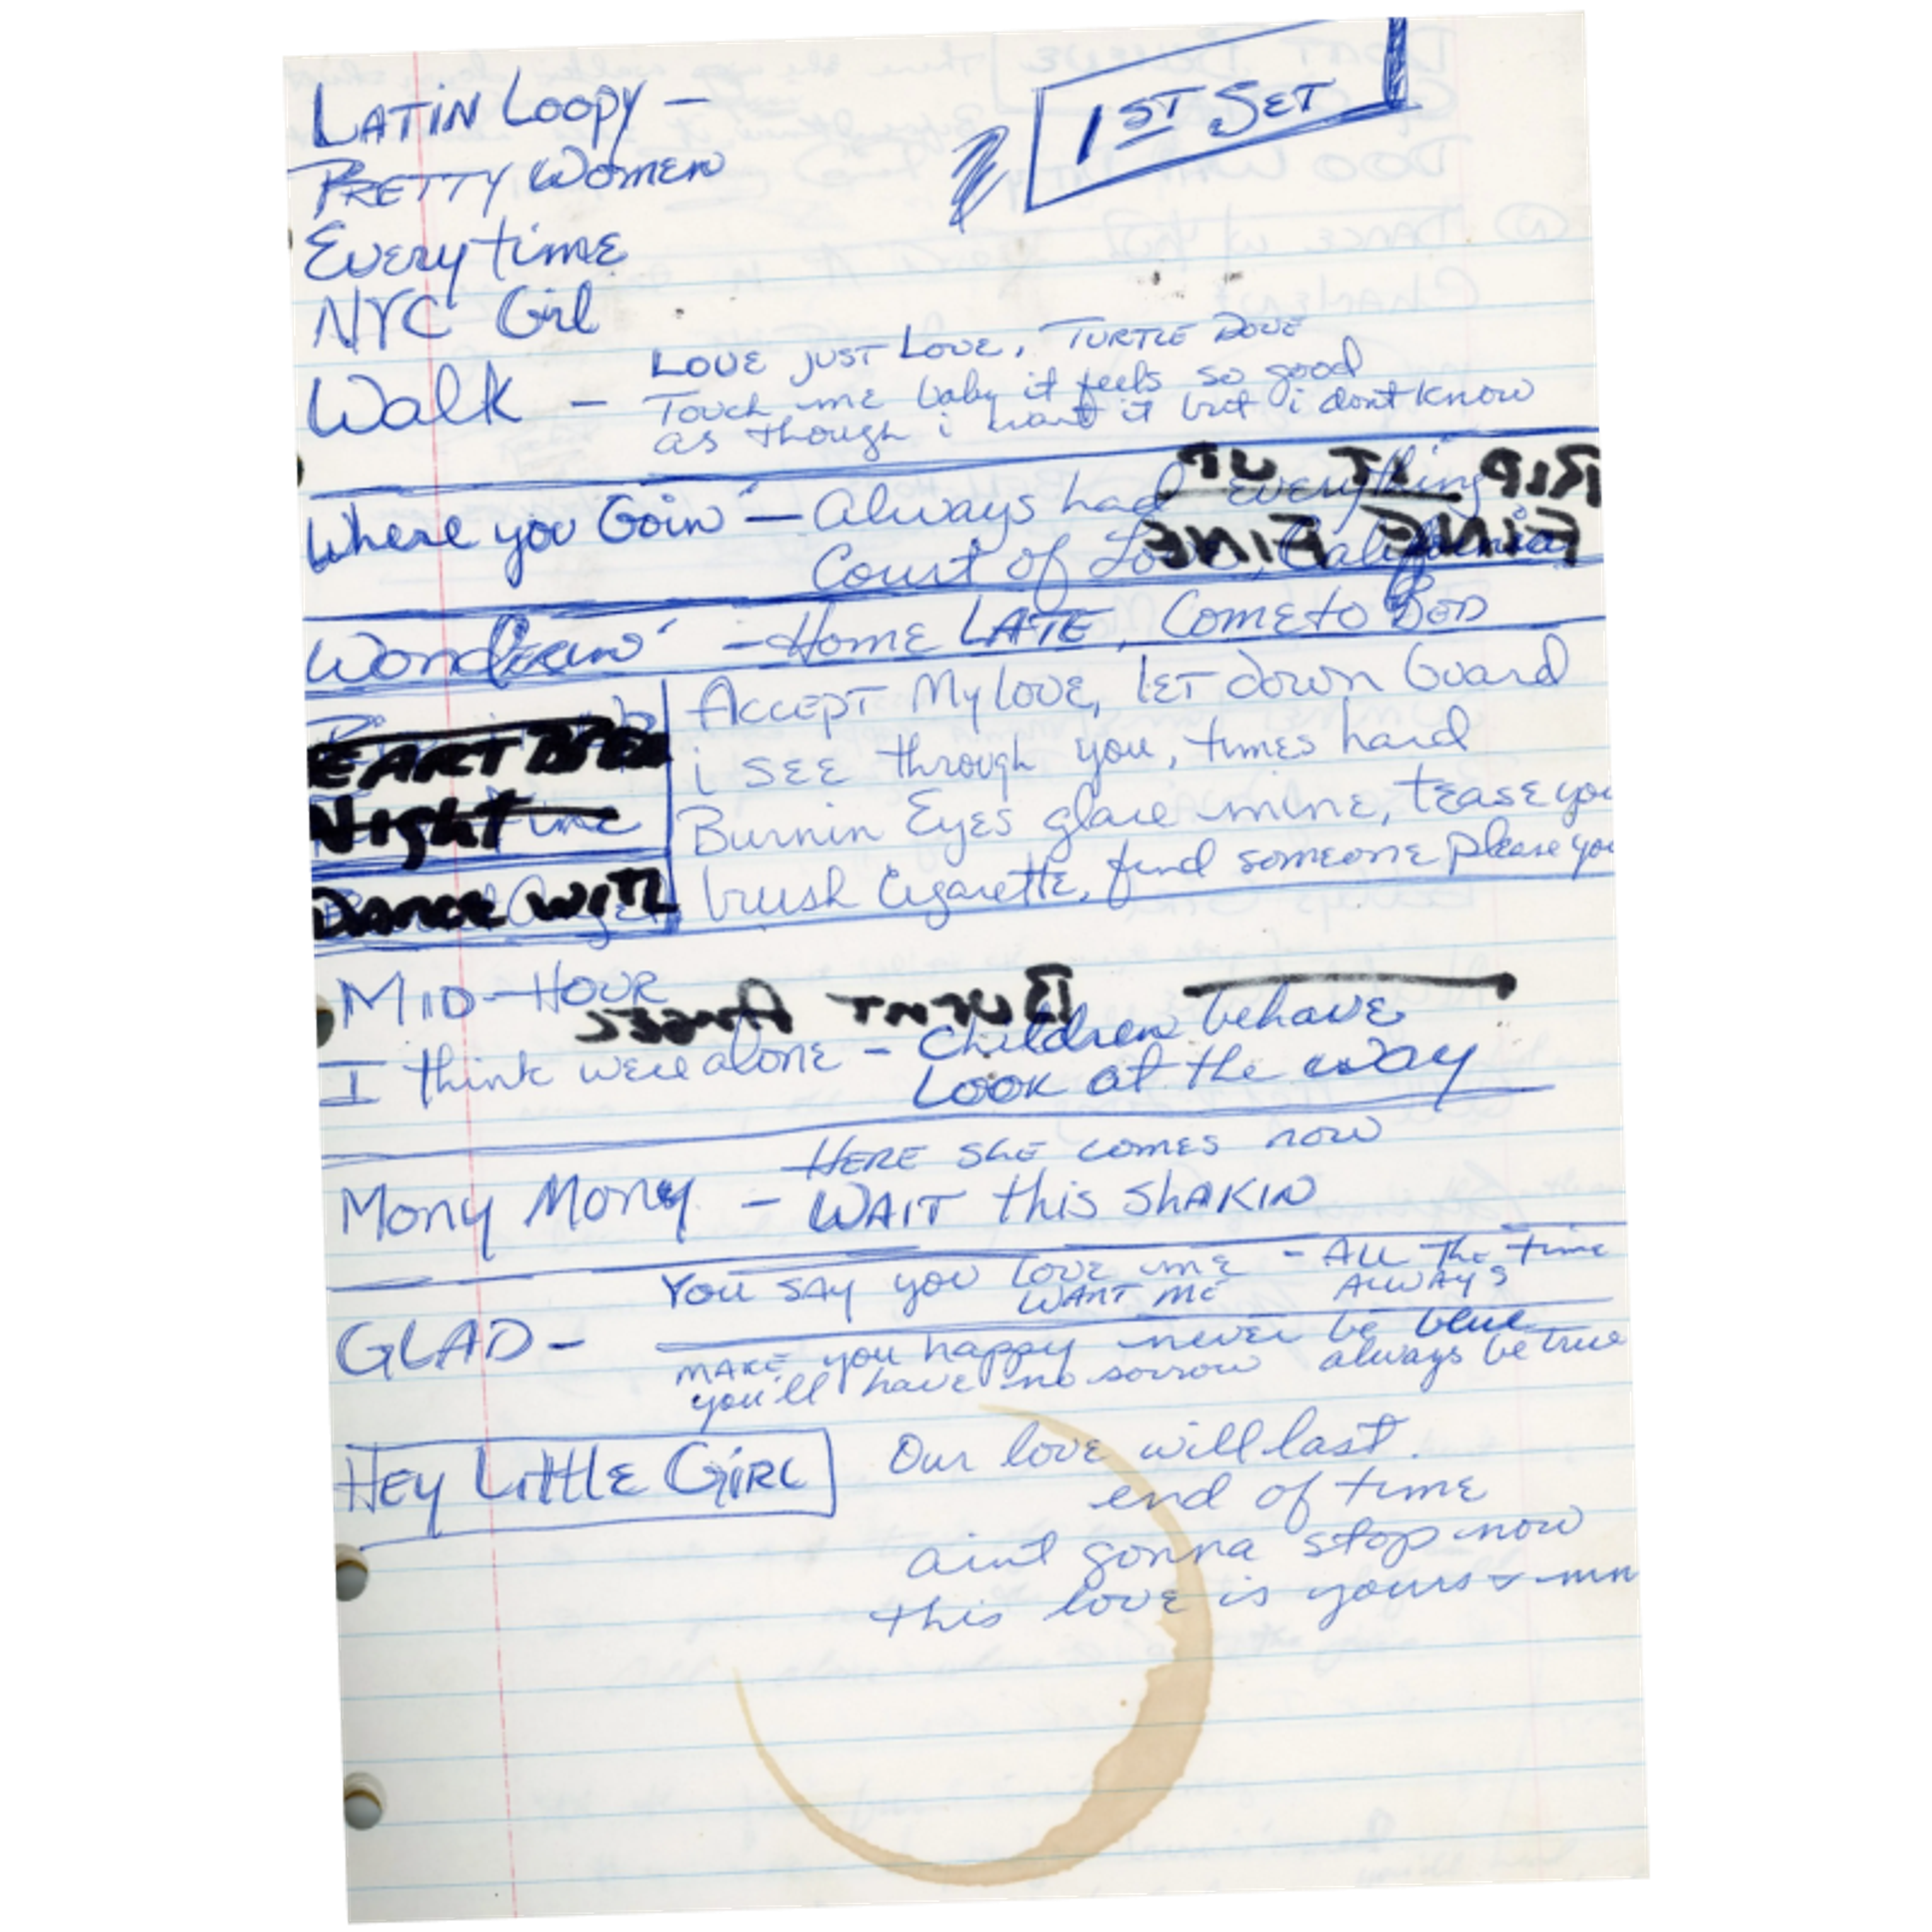 1ST SET
LATIN LOOPY -
PRETTY WOMEN
Everytime
NYC Girl
Walk - LOVE JUST LOVE, TURTLE DOVE
Touch me baby it feels so good
as though i want it but i dont know
Where you Goin' - Always had everything
RIP IT UP
Court of Love, California
FINE FINE
Wonderin' - HOME LATE, COME to BED
ACCEPT My LOVE, LET down Guard
EART
i SEE through you, times hard
Night time
Burnin Eyes glare mine, tease you
DANCE WITH
brush Cigarette, find someone please you
MID-HOUR
BURNT ANGEL
I think were alone - Children behave
LOOK at the way
HERE SHE COMES now
Mony Mony - WAIT this SHAKIN
You SAY you LOVE ME - ALL The time
WANT ME ALWAYS
GLAD - MAKE you happy never be blue
you'll have no sorrow always be true
HEY LittLE GiRL
Our love will last.
end of time
aint gonna stop now
this love is yours + min